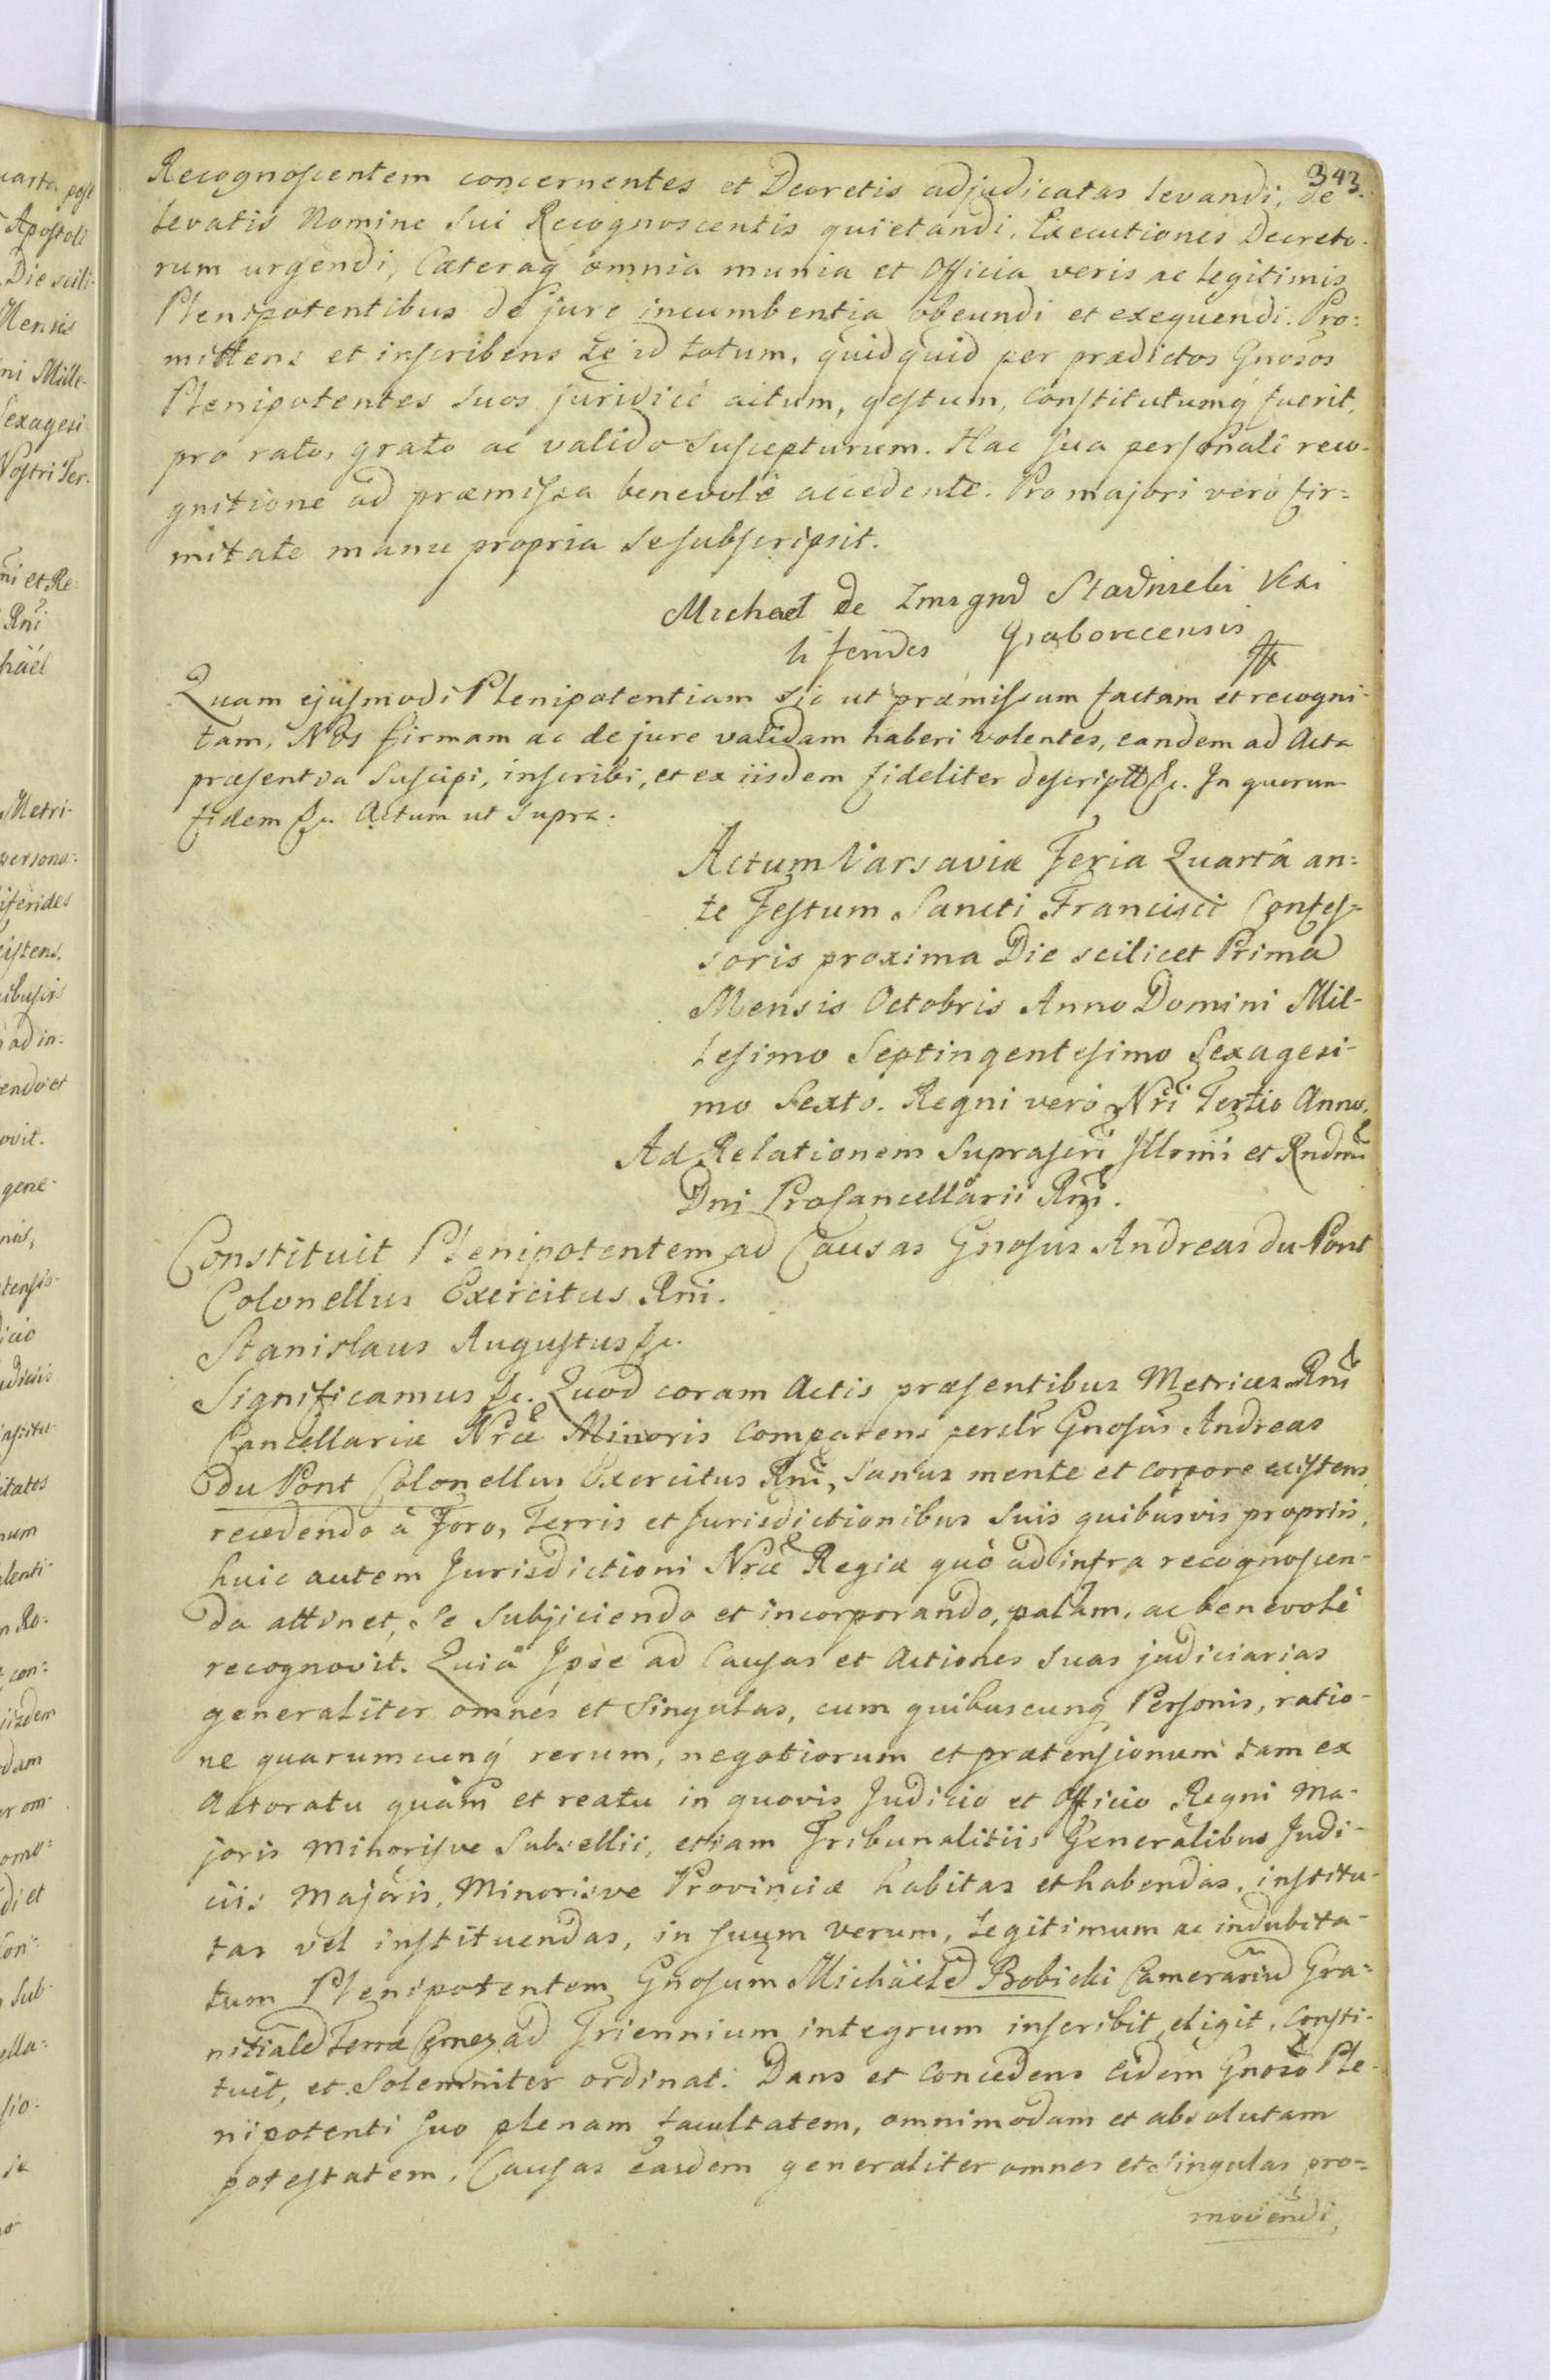 343.
Recognoscentem concernentes et Decretis adjudicatas levandi, de
levatis Nomine Sui Recognoscentis quietandi, Executiones Decreto-
rum urgendi, Caeteraq́ omnia munia et Officia veris ac legitimis
Plenipotentibus de jure incumbentia obeundi et exequendi. Pro:
mittens et inscribens se id totum, quidquid per praedictos Gnosos
Plenipotentes suos juridicè actum, gestum, constitutumq́ fuerit,
pro rato, grato ac valido Suscepturum. Hac sua personali reco-
gnitione ad praemissa benevolè accedente. Pro majori verò fir=
mitate manu propria se subscripsit.
Michael de Zmigrod Stadnicki Vexi
liferides Grabovecensis
Quam ejusmodi Plenipotentiam sic ut praemissum factam et recogni-
tam, Nos firmam ac de jure validam haberi volentes, eandem ad Acta
praesentia Suscipi, inscribi, et ex iisdem fideliter descriptt &c. In quorum
fidem &c. Actum ut Supra.
Actum Varsaviae Feria Quartâ an=
te Festum Sancti Francisci Confes=
soris proxima Die scilicet Prima
Mensis Octobris Anno Domini Mil-
lesimo Septingentesimo Sexagesi-
mo Sexto. Regni verò Nri Tertio Anno.
Ad Relationem Suprascri Illmi et Rndmi
Dni Procancellarii Rni.
Constituit Plenipotentem ad Causas Gnosus Andreas du Pont
Colonellus Exercitus Rni.
Stanislaus Augustus &c.
Significamus &c. Quod coram Actis praesentibus Metrices Rni
Cancellariae Nrae Minoris comparens persłr Gnosus Andreas
du Pont Colonellus Exercitus Rni, Sanus mente et corpore existens
recedendo à Foro, Terris et Jurisdictionibus Suis quibusvis propriis,
huic autem Jurisdictioni Nrae Regiae quò ad infra recognoscen-
da attinet, Se Subjiciendo et incorporando, palàm, ac benevolè
recognovit. Quia Ipse ad Causas et Actiones Suas judiciarias
generaliter omnes et Singulas, cum quibuscunq́ Personis, ratio-
ne quarumcunq́ rerum, negotiorum et praetensionum tam ex
Actoratu quàm et reatu in quovis Judicio et Officio Regni Ma-
joris Minorisve Subsellii, etiam Tribunalitiis Generalibus Judi-
ciis Majoris, Minorisve Provinciae habitas et habendas, institu-
tas vel instituendas, in suum verum, legitimum ac indubita-
tum Plenipotentem Gnosum Michäelẽ Bobicki Camerariũ Gra=
nitialẽ Terrae ad Triennium integrum inscribit, eligit, Consti-
tuit, et Solemniter ordinat. Dans et Concedens Eidem Gnoso Ple-
nipotenti suo plenam facultatem, omnimodam et absolutam
potestatem, Causas easdem generaliter omnes et Singulas pro=
movendi,